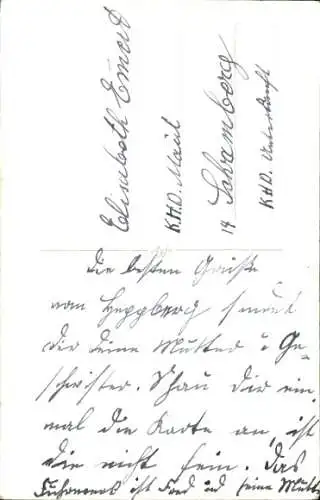 Elisabeth Emert
K.H.D. Maid
14 Schramberg
KHD. Unterkunft
Die besten Grüße
von Heppberg sendet
dir deine Mutter u Ge-
schwister. Schau dir ein-
mal die Karte an, ist
die nicht fein. Das
ist und seine Mutt